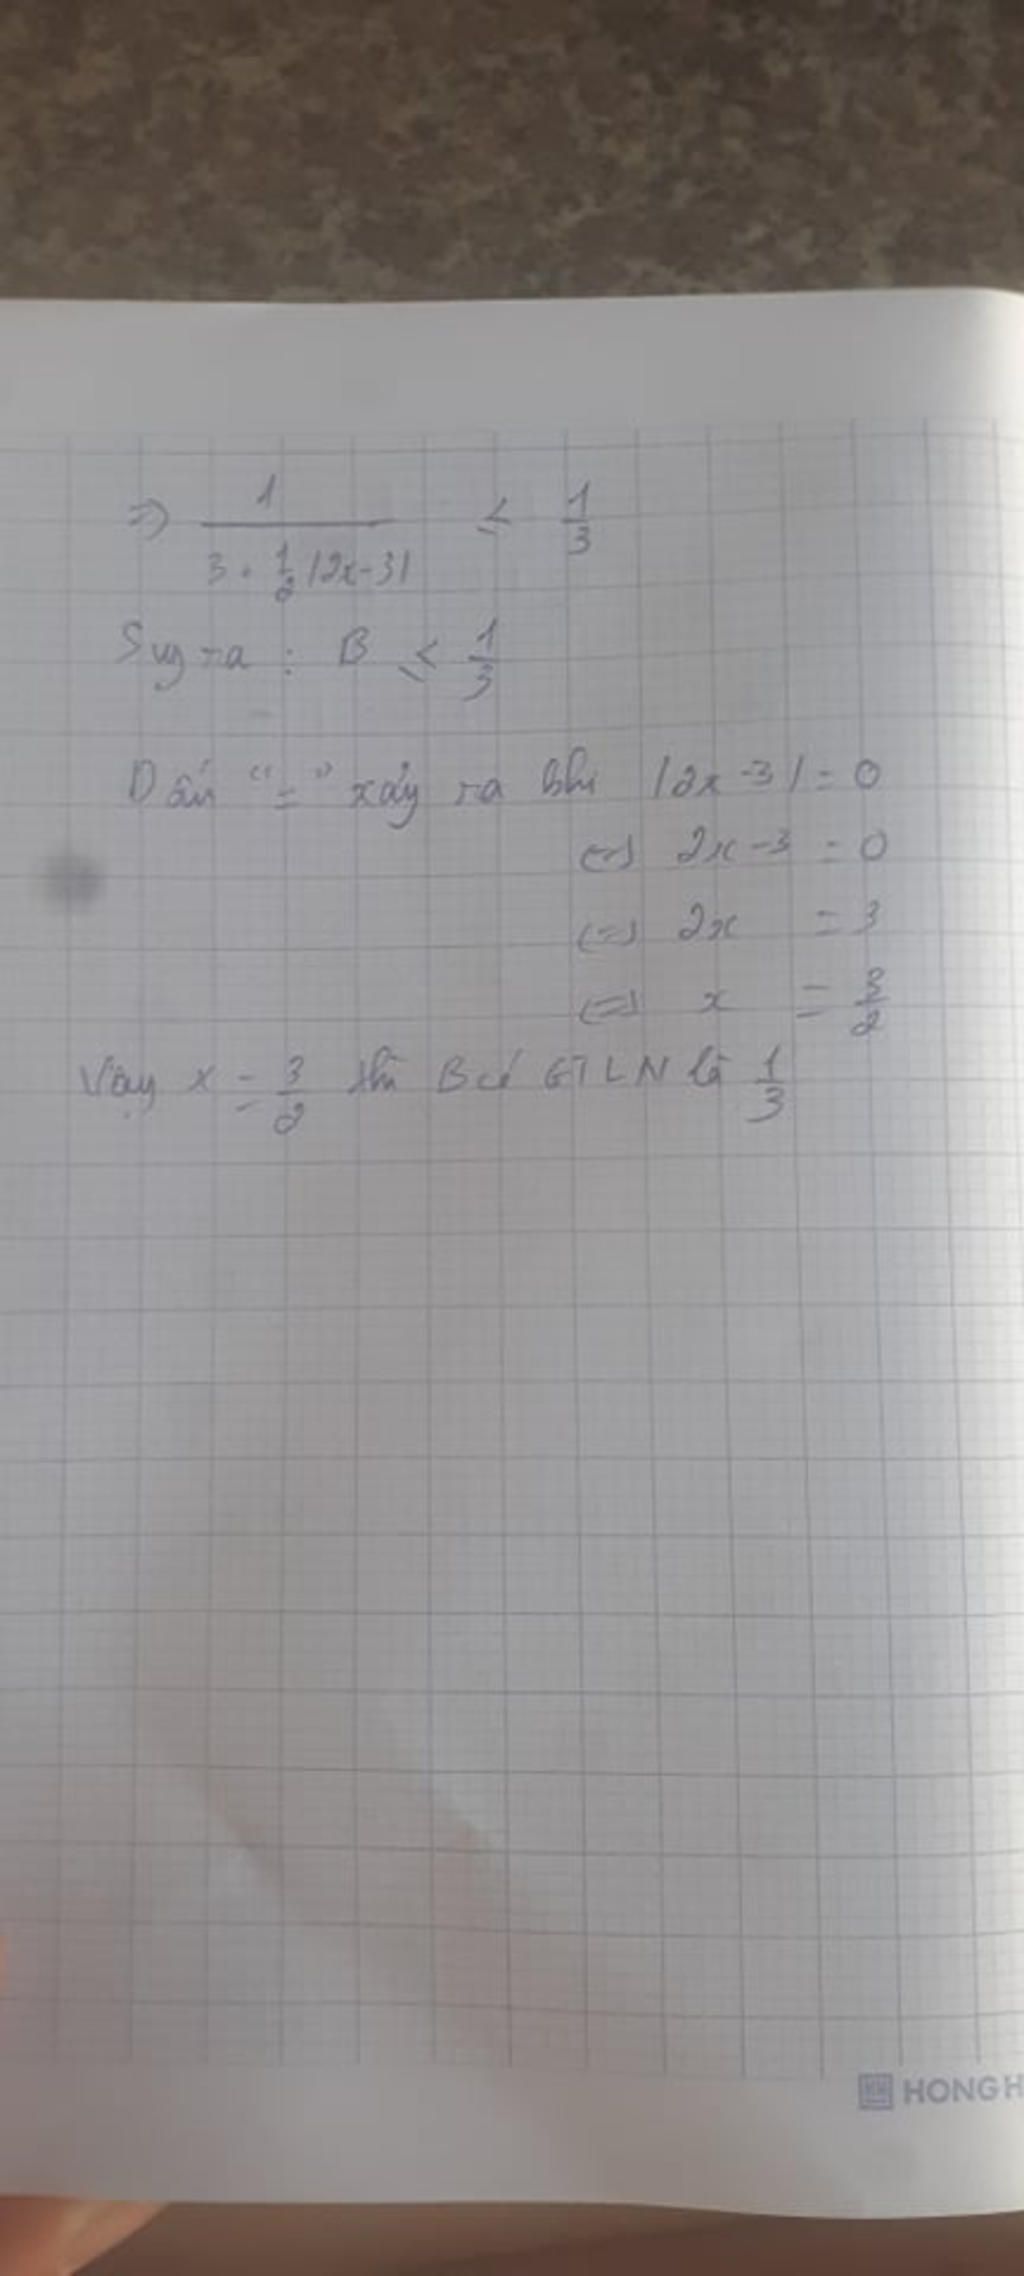 => 1 / (3 + 1/2 |2x-3|) ≤ 1/3
Suy ra : B ≤ 1/3
Dấu "=" xảy ra khi |2x-3| = 0
<=> 2x-3 = 0
<=> 2x = 3
<=> x = 3/2
Vậy x = 3/2 thì B có GTLN là 1/3
HONG H